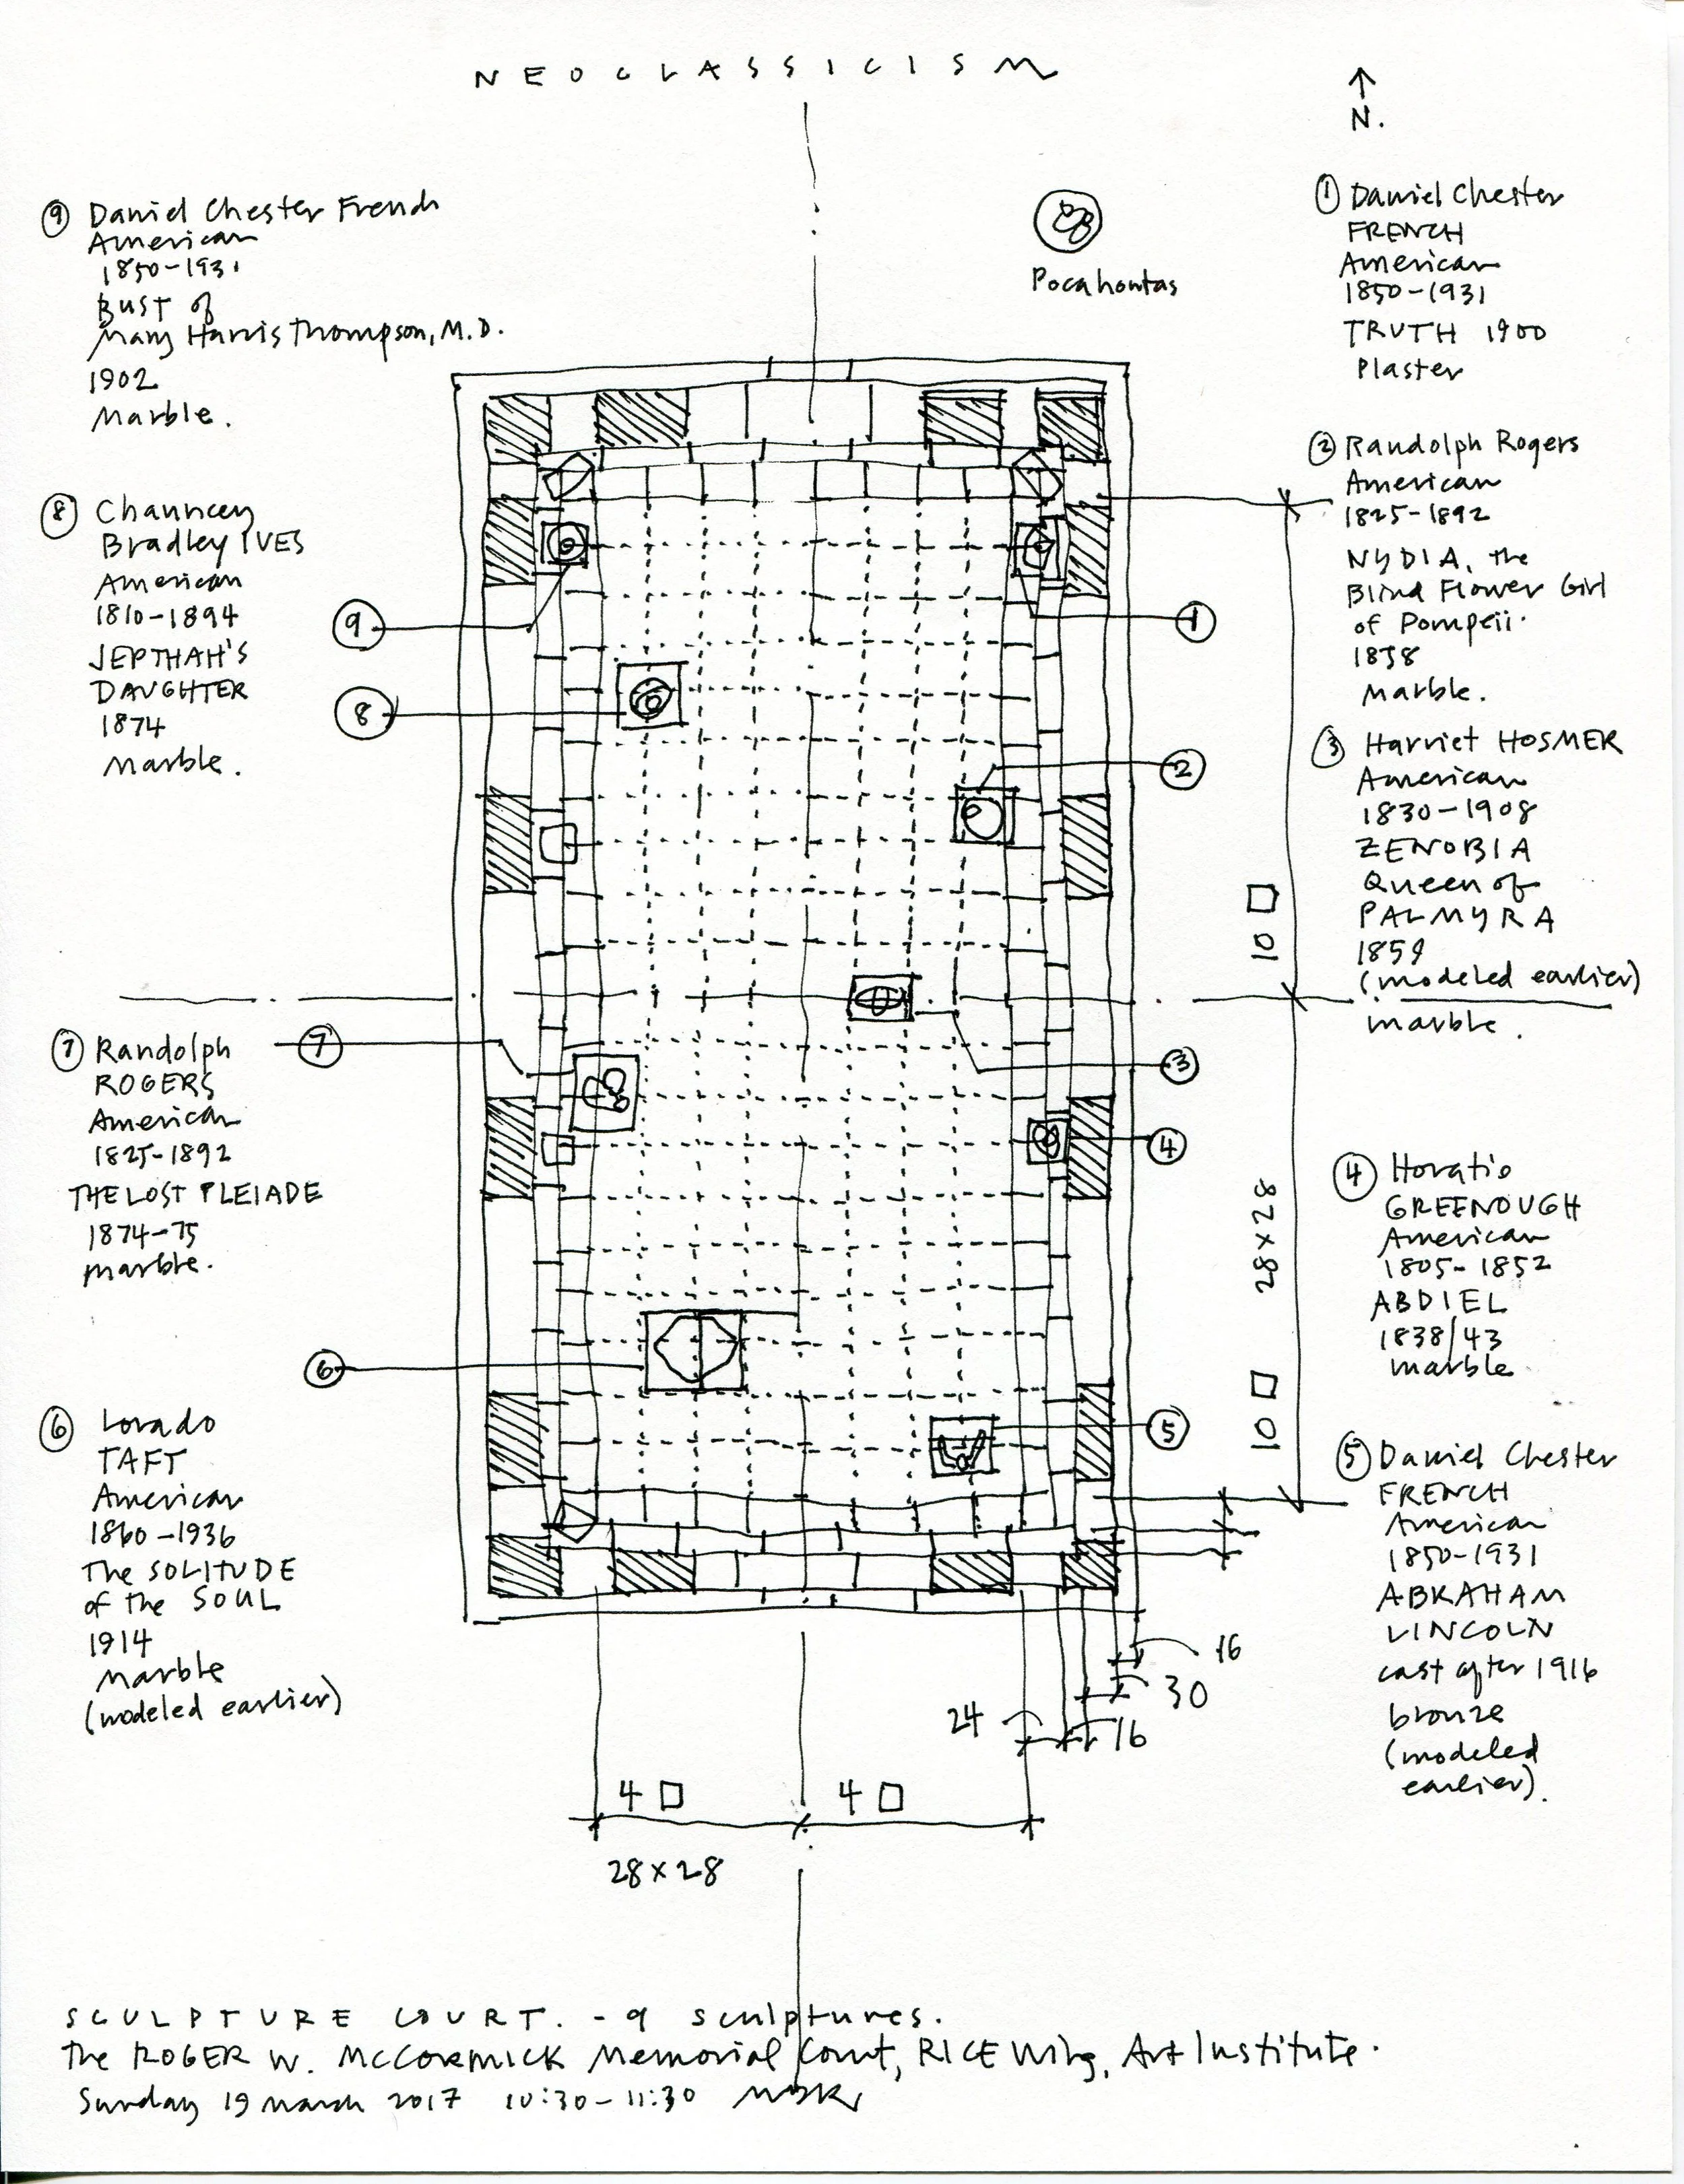 NEOCLASSICISM
N.
Pocahontas
① Daniel Chester
FRENCH
American
1850-1931
TRUTH 1900
Plaster
② Randolph Rogers
American
1825-1892
NYDIA, the
Blind Flower Girl
of Pompeii.
1858
Marble.
③ Harriet HOSMER
American
1830-1908
ZENOBIA
Queen of
PALMYRA
1859
(modeled earlier)
marble.
④ Horatio
GREENOUGH
American
1805-1852
ABDIEL
1838/43
marble
⑤ Daniel Chester
FRENCH
American
1850-1931
ABRAHAM
LINCOLN
cast after 1916
bronze
(modeled
earlier).
⑥ Lorado
TAFT
American
1860-1936
The SOLITUDE
of the SOUL
1914
Marble
(modeled earlier)
⑦ Randolph
ROGERS
American
1825-1892
THE LOST PLEIADE
1874-75
marble.
⑧ Chauncey
Bradley IVES
American
1810-1894
JEPTHAH'S
DAUGHTER
1874
Marble.
⑨ Daniel Chester French
American
1850-1931
BUST of
Mary Harris Thompson, M.D.
1902
Marble.
⑨
⑧
⑦
⑥
①
②
③
④
⑤
10 □
28×28
10 □
16
30
16
24
4 □
4 □
28×28
SCULPTURE COURT. - 9 sculptures.
The ROGER W. McCORMICK Memorial Court, RICE Wing, Art Institute.
Sunday 19 March 2017 10:30-11:30